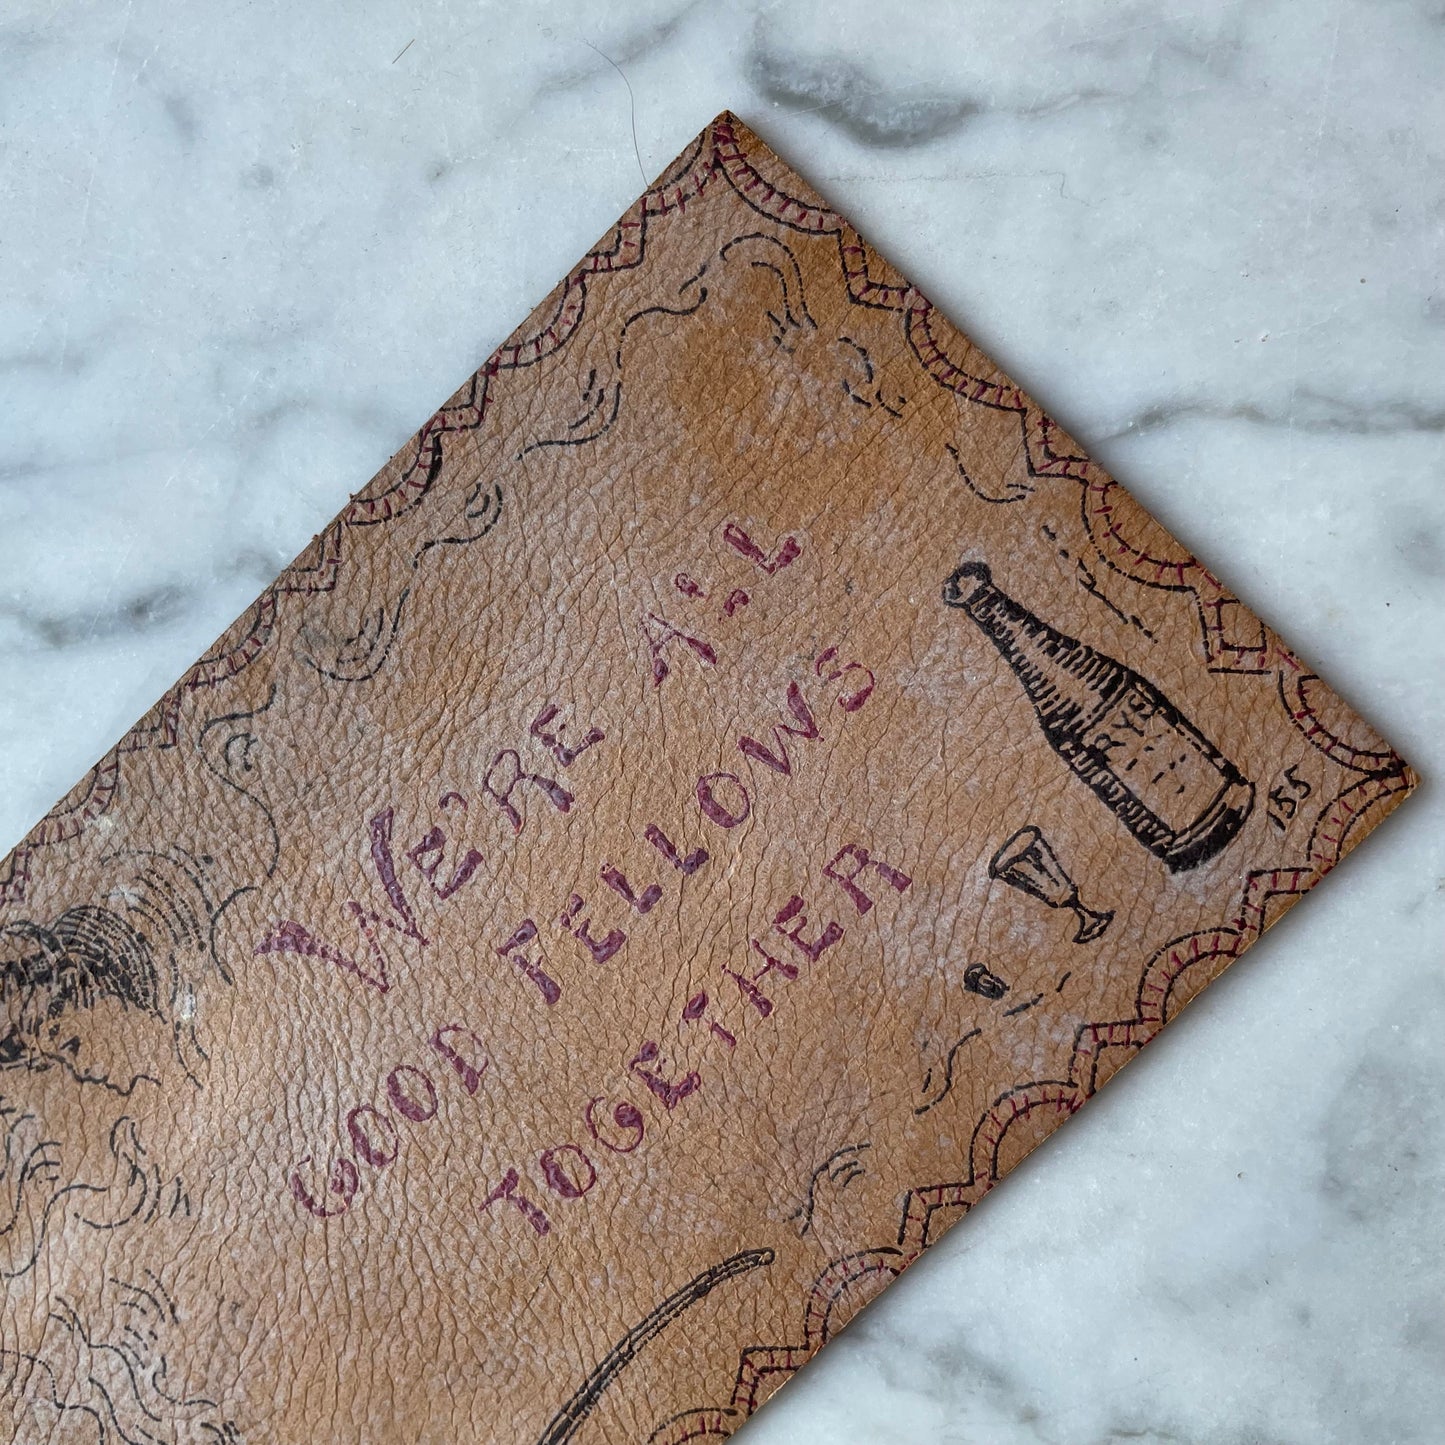 WE'RE ALL
GOOD FELLOWS
TOGETHER
155